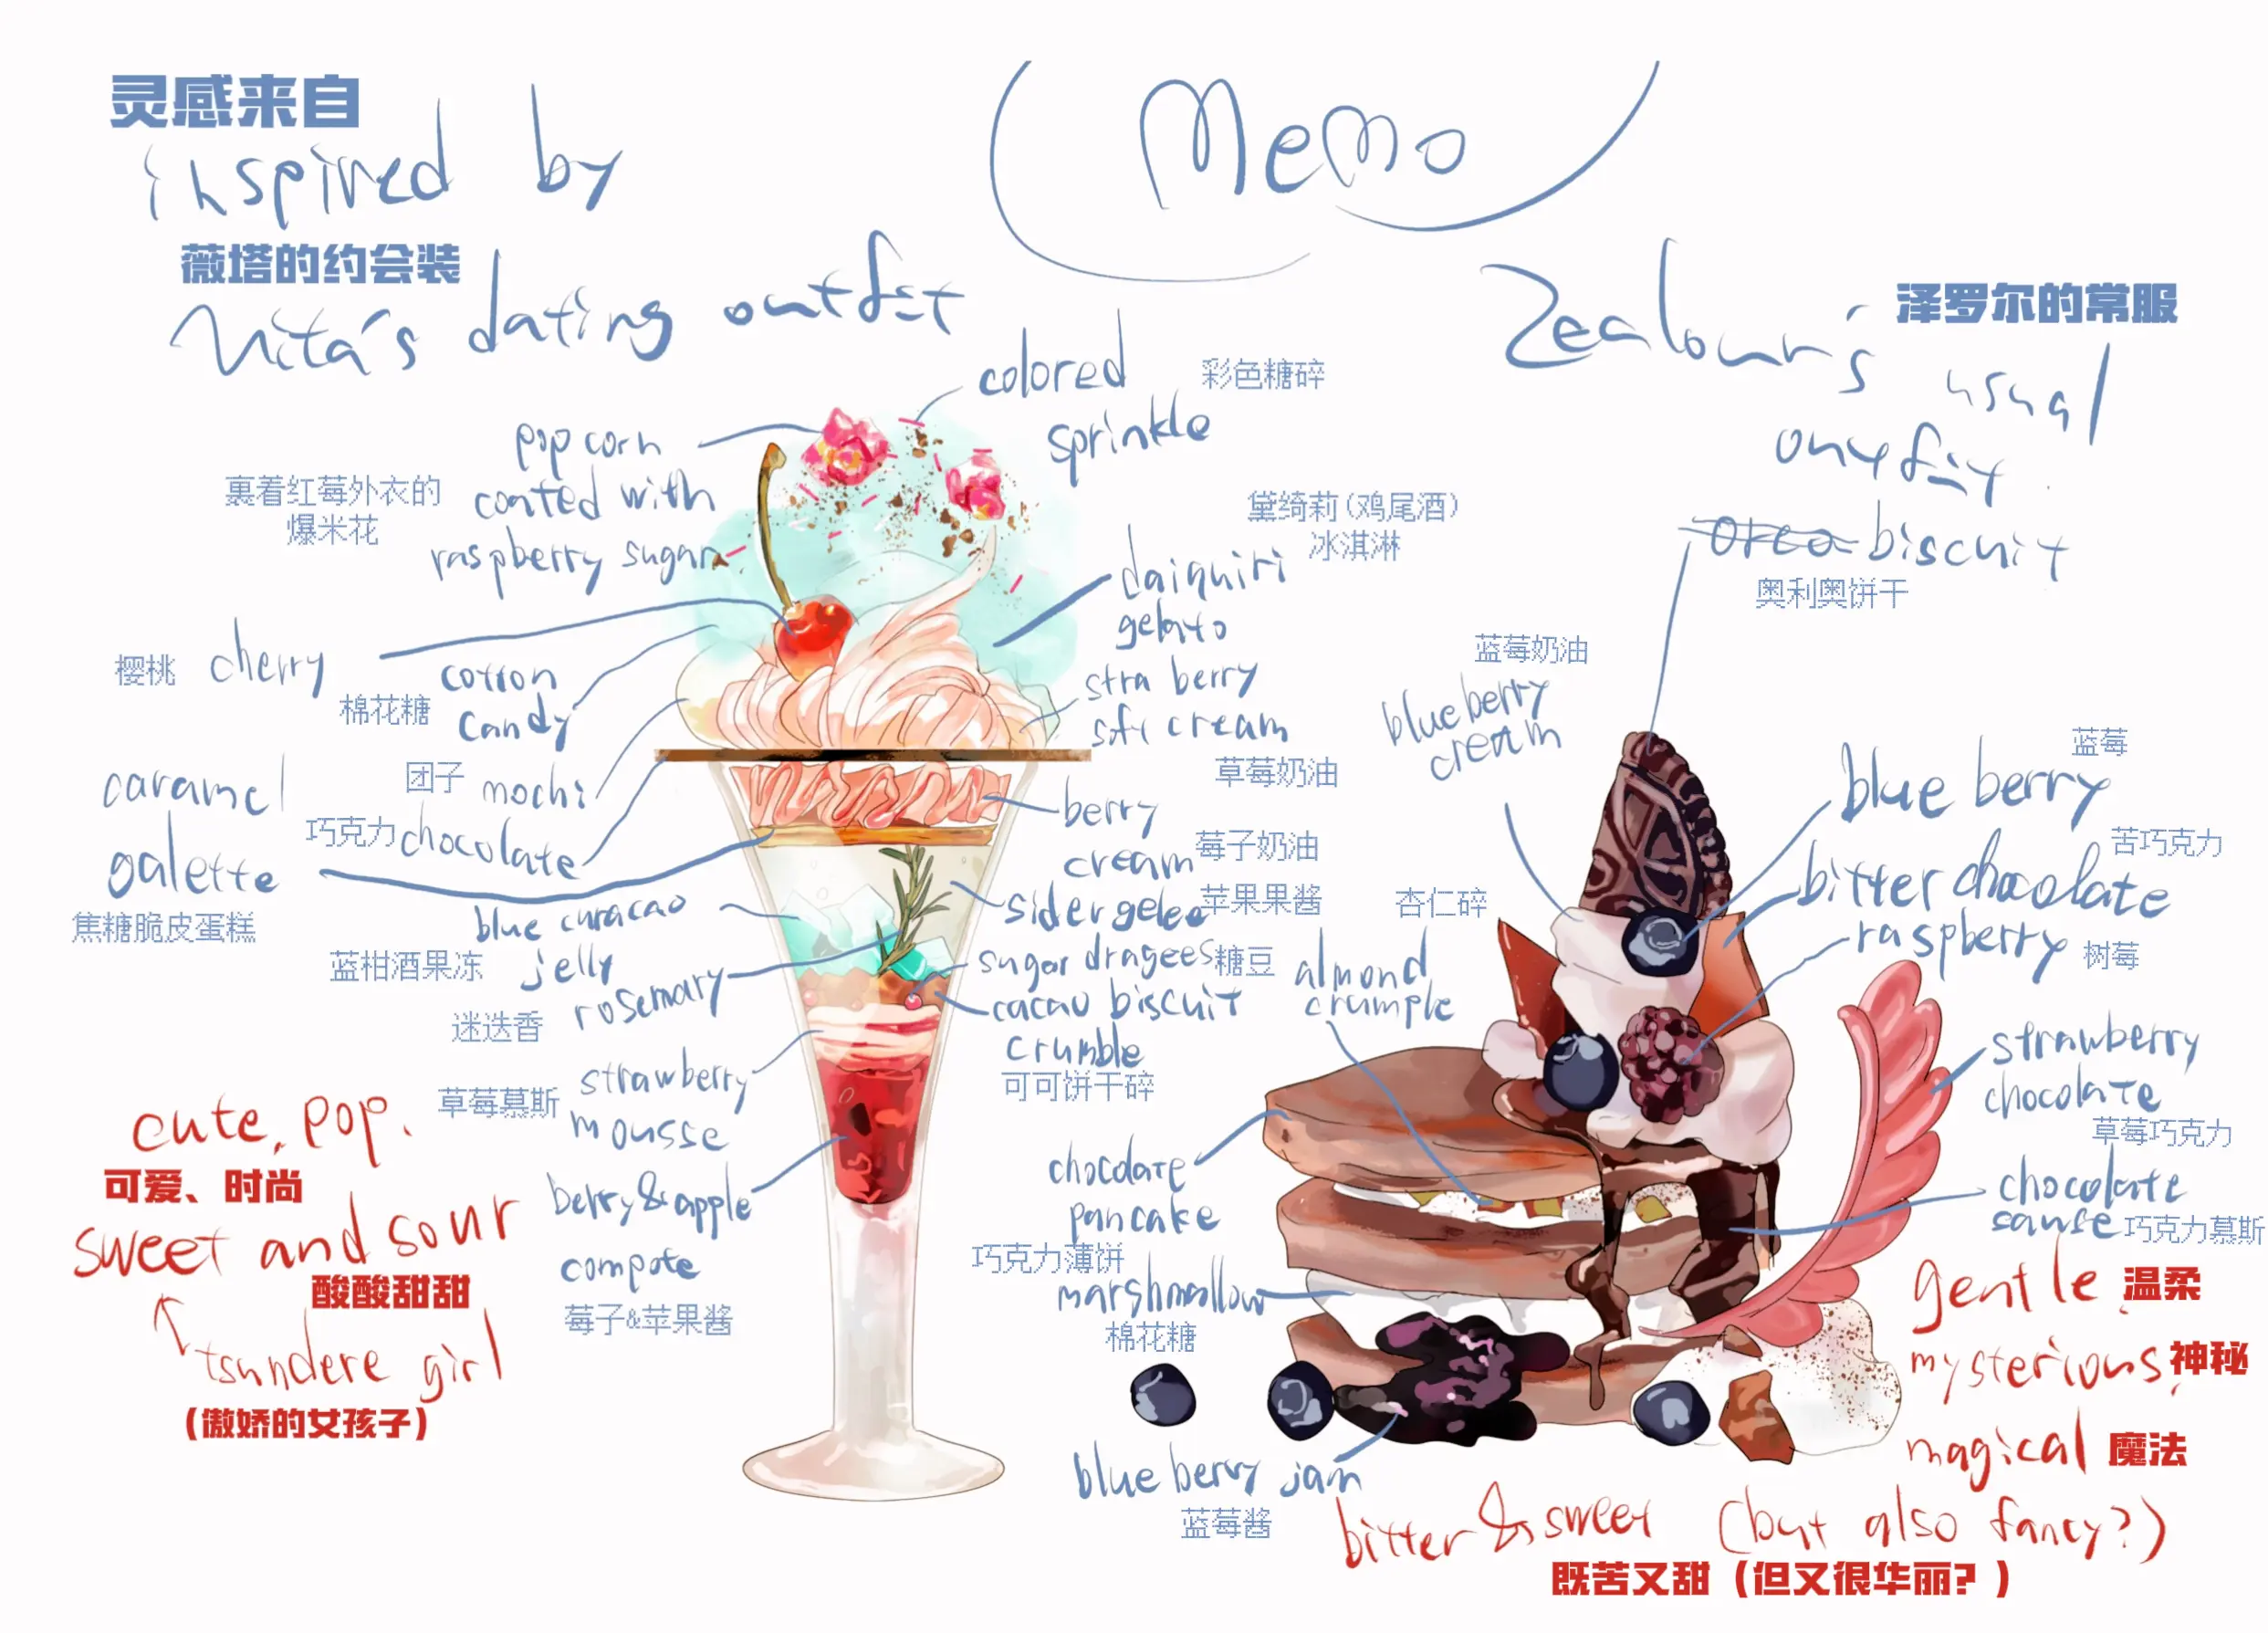 Memo
灵感来自
inspired by
薇塔的约会装
Vita's dating outfit
泽罗尔的常服
Zealour's
usual
outfit
colored
彩色糖碎
sprinkle
pop corn
coated with
raspberry sugar
裹着红莓外衣的
爆米花
黛绮莉(鸡尾酒)
冰淇淋
daiquiri
gelato
cherry
樱桃
cotton
candy
棉花糖
straberry
soft cream
草莓奶油
团子
mochi
巧克力
chocolate
caramel
galette
焦糖脆皮蛋糕
berry
cream
莓子奶油
sider gelee
苹果果酱
blue curacao
jelly
蓝柑酒果冻
rosemary
迷迭香
sugar dragees
糖豆
cacao biscuit
crumble
可可饼干碎
strawberry
mousse
草莓慕斯
berry&apple
compote
莓子&苹果酱
cute, pop.
可爱、时尚
sweet and sour
酸酸甜甜
tsundere girl
(傲娇的女孩子)
oreo biscuit
奥利奥饼干
蓝莓奶油
blueberry
cream
蓝莓
blue berry
苦巧克力
bitter chocolate
raspberry
树莓
杏仁碎
almond
crumple
strawberry
chocolate
草莓巧克力
chocolate
pancake
巧克力薄饼
chocolate
sause
巧克力慕斯
marshmallow
棉花糖
blue berry jam
蓝莓酱
gentle
温柔
mysterious,
神秘
magical
魔法
bitter & sweet (but also fancy?)
既苦又甜(但又很华丽?)